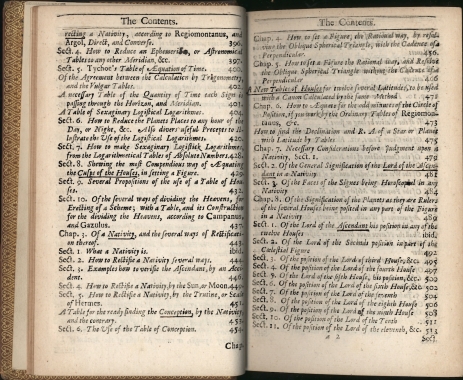 The Contents.
recting a Nativity, according to Regiomontanus, and
Argol, Direct, and Converse. 396
Sect. 4. How to Reduce an Ephemeris, or Astronomical
Tables to any other Meridian, &c. 397.
Sect. 5. Tycho's Table of Equation of Time.
Of the Agreement between the Calculation by Trigonometry,
and the Vulgar Tables.
A necessary Table of the Quantity of Time each Sign
passing through the Horizon, and Meridian. 403.
A Table of Sexaginary Logistical Logarithmes. 404
Sect. 6. How to Reduce the Planets Places to any hour of the
Day, or Night, &c. Also divers useful Precepts to Il-
lustrate the Use of the Logistical Logarithmes. 422.
Sect. 7. How to make Sexaginary Logistick Logarithmes,
from the Logarithmetical Tables of Absolute Numbers. 428.
Sect. 8. Shewing the most Compendious way of Æquating
the Cusps of the Houses, in setting a Figure. 429
Sect. 9. Several Propositions of the use of a Table of Hou-
ses. 432
Sect. 10. Of the several ways of dividing the Heavens, for
Erecting of a Scheme; with a Table, and its Construction
for the dividing the Heavens, according to Campanus,
and Gazulus. 437
Chap. 3. Of a Nativity, and the several ways of Rectification
thereof. 443.
Sect. 1. What a Nativity is. ibid.
Sect. 2. How to Rectifie a Nativity several ways. 444
Sect. 3. Examples how to verifie the Ascendent, by an Acci-
dent. 446
Sect. 4. How to Rectifie a Nativity, by the Sun, or Moon. 449
Sect. 5. How to Rectifie a Nativity, by the Trutine, or Scale
of Hermes. 451
A Table for the ready finding the Conception, by the Nativity,
and the contrary. 453
Sect. 6. The Use of the Table of Conception. 454
Chap.
The Contents.
Chap. 4. How to set a Figure, the Rational way, by resol-
ving the Oblique Spherical Triangle, with the Cadence of a
Perpendicular. 456.
Chap. 5. How to set a Figure the Rational way, and Resolve
the Oblique Spherical Triangle without the Cadence of a
Perpendicular
A New Table of Houses for twelve several Latitudes, to be used
with a Canon Calculated by the same Method. 472
Chap. 6. How to Æquate for the odd minutes of the Circle of
Position, if you work by the Ordinary Tables of Regiomon-
tanus, &c. 473
How to find the Declination and R. A. of a Star or Planet
with Latitude by Tables 475
Chap. 7. Necessary Considerations before Judgment upon a
Nativity, Sect. 1. 479
Sect. 2. Of the General Signification of the Lord of the Ascend-
ant in a Nativity 481
Sect. 3. Of the Faces of the Signes being Horoscopical in any
Nativity 484
Chap. 8. Of the Signification of the Planets as they are Rulers
of the several Houses being posited in any part of the Figure
in a Nativity 489
Sect. 1. Of the Lord of the Ascendant his position in any of the
twelve Houses ibid.
Sect. 2. Of the Lord of the Second position in part of the
Cælestial Figure 492
Sect. 3. Of the position of the Lord of the third House, &c. 495
Sect. 4. Of the position of the Lord of the fourth House 497
Sect. 5. Of the Lord of the fifth House, his position, &c. 500
Sect. 6. Of the position of the Lord of the sixth House, &c. 502
Sect. 7. Of the position of the Lord of the seventh 504
Sect. 8. Of the position of the Lord of the eighth House 506
Sect. 9. Of the position of the Lord of the ninth House 508
Sect. 10. Of the position of the Lord of the Tenth 511
Sect. 11. Of the position of the Lord of the eleventh, &c. 513
a 2 Sect.